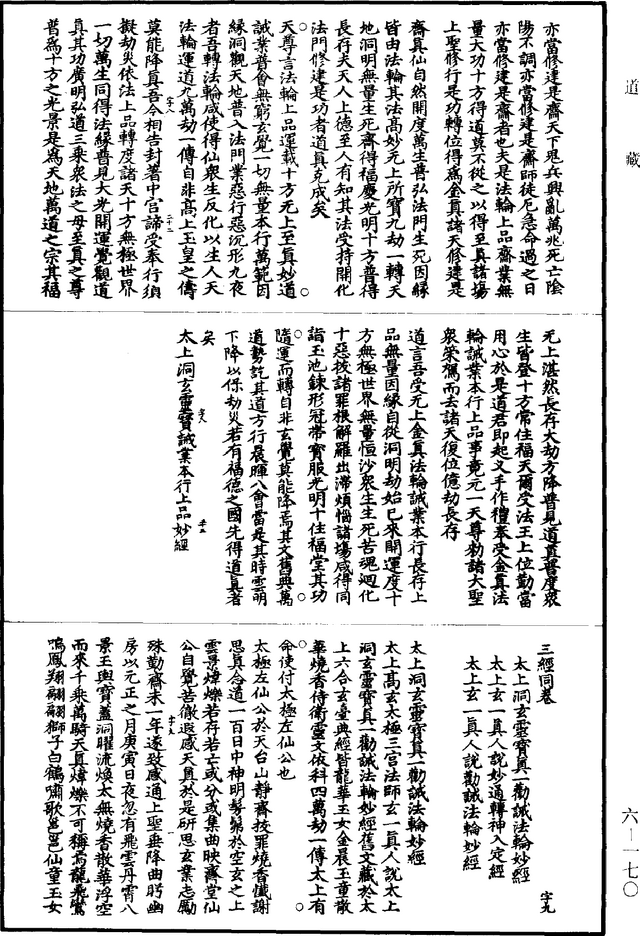 道藏
亦當修建是齋天下兇兵興亂萬兆死亡陰
陽不調亦當修建是齋師徒厄急命過之日
亦當修建是齋者也夫是法輪上品齋業無
量大功十方得道莫不從之以得至真諸場
上聖修行是功轉位得為金真諸天修建是
齋真仙自然開度萬生普弘法門生死因緣
皆由法輪其法高妙无上所寶九劫一轉天
地洞明無量生死齊得福慶光明十方普得
長存夫天人上德至人有知其法受持開化
法門修建是功者道真克成矣
天尊言法輪上品運載十方无上至真妙道
誡業普會無窮玄覺一切無量本行萬範因
緣洞觀天地普入法門業惡行惡沉形九夜
者吾轉法輪咸使得仙眾生反化以生人天
法輪運道九萬劫一傳自非高上玉皇之儔
莫能降真吾今相告封著中宮諦受奉行須
擬劫災依法上品轉度諸天十方無極世界
一切萬生同得法緣普見大光開運覺觀道
真其功廣明弘道三乘眾法之母至真之尊
普為十方之光景是為天地萬道之宗其福
无上湛然長存大劫方降普見道真普度眾
生皆登十方常住福天爾受法王上位勤當
用心於是道君即起叉手作禮奉受金真法
輪誡業本行上品事竟元一天尊勑諸大聖
眾策駕而去諸天復位億劫長存
道言吾受无上金真法輪誡業本行長存上
品無量因緣自從洞明劫始已來開運度十
方無極世界無量恒沙眾生生死苦魂迴化
十惡拔諸罪根解羅出滯煩惱諸場咸得同
詣玉池鍊形冠帶寶服光明十住福堂其功
隨運而轉自非玄覺莫能降焉其文舊典萬
道勢託其道方行晨暉八會當是其時雲萌
下降以保劫災若有福德之國先得道真者
矣
太上洞玄靈寶誡業本行上品妙經
三經同卷 字九
太上洞玄靈寶真一勸誡法輪妙經
太上玄一真人說妙通轉神入定經
太上玄一真人說勸誡法輪妙經
太上洞玄靈寶真一勸誡法輪妙經
太上高玄太極三宮法師玄一真人說太上
洞玄靈寶真一勸誡法輪妙經舊文藏於太
上六合玄臺典經皆龍華玉女金晨玉童散
華燒香侍衛靈文依科四萬劫一傳太上有
命使付太極左仙公也
太極左仙公於天台山靜齋拔罪燒香懺謝
思真念道一百日中神明髣髴於空玄之上
雲景煒爍若存若亡或分或集曲映齋堂仙
公自覺苦徹遐感天真於是研思玄業志勵
殊勤齋未一年遂致感通上聖垂降曲眄幽
房以元正之月庚寅日夜忽有飛雲丹霄八
景玉輿寶蓋洞曜流煥太無燒香散華浮空
而來千乘萬騎天真煒爍不可稱焉龍飛鸞
鳴鳳翔翩翩獅子白鶴嘯歌邕邕仙童玉女
六—一七〇